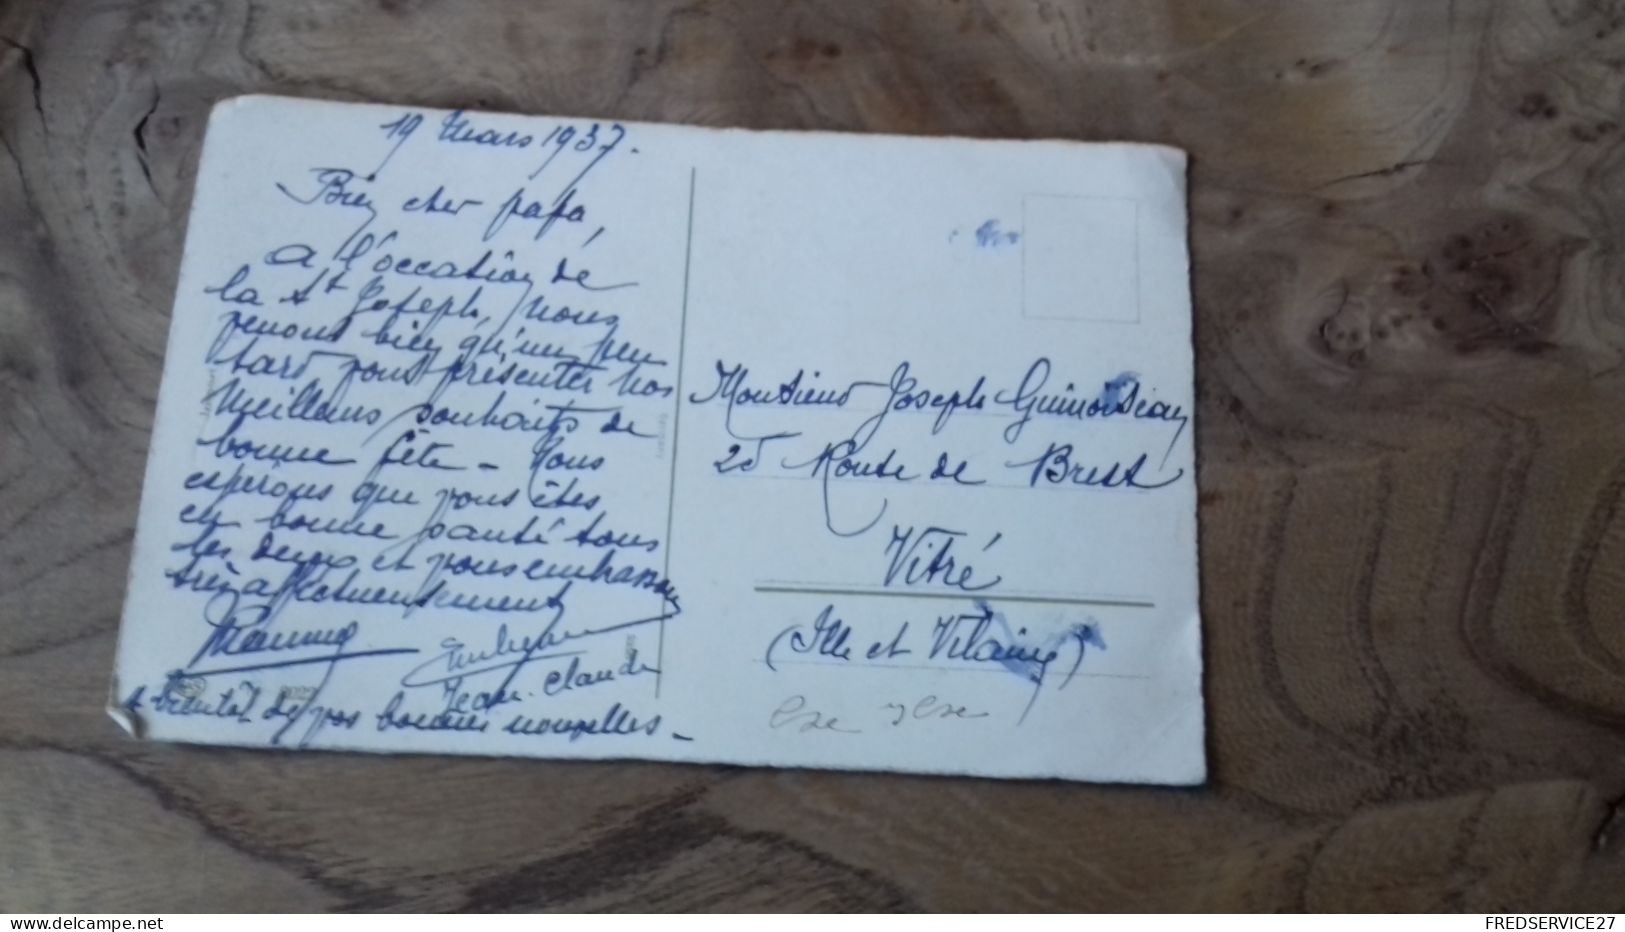 19 Mars 1937.
Bien cher papa,
A l'occation de
la St Joseph, nous
venons bien qu'un peu
tard vous présenter nos
meilleurs souhaits de
bonne fête - Nous
espérons que vous êtes
en bonne santé tous
les deux et vous embrassons
très affectueusement
Jean-Claude
A bientôt de vos bonnes nouvelles -
Monsieur Joseph
25 Route de Brest
Vitré
(Ille et Vilaine)
www.delcampe.net
FREDSERVICE27